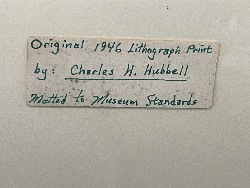 Original 1946 Lithograph Print
by: Charles H. Hubbell
Matted to Museum Standards